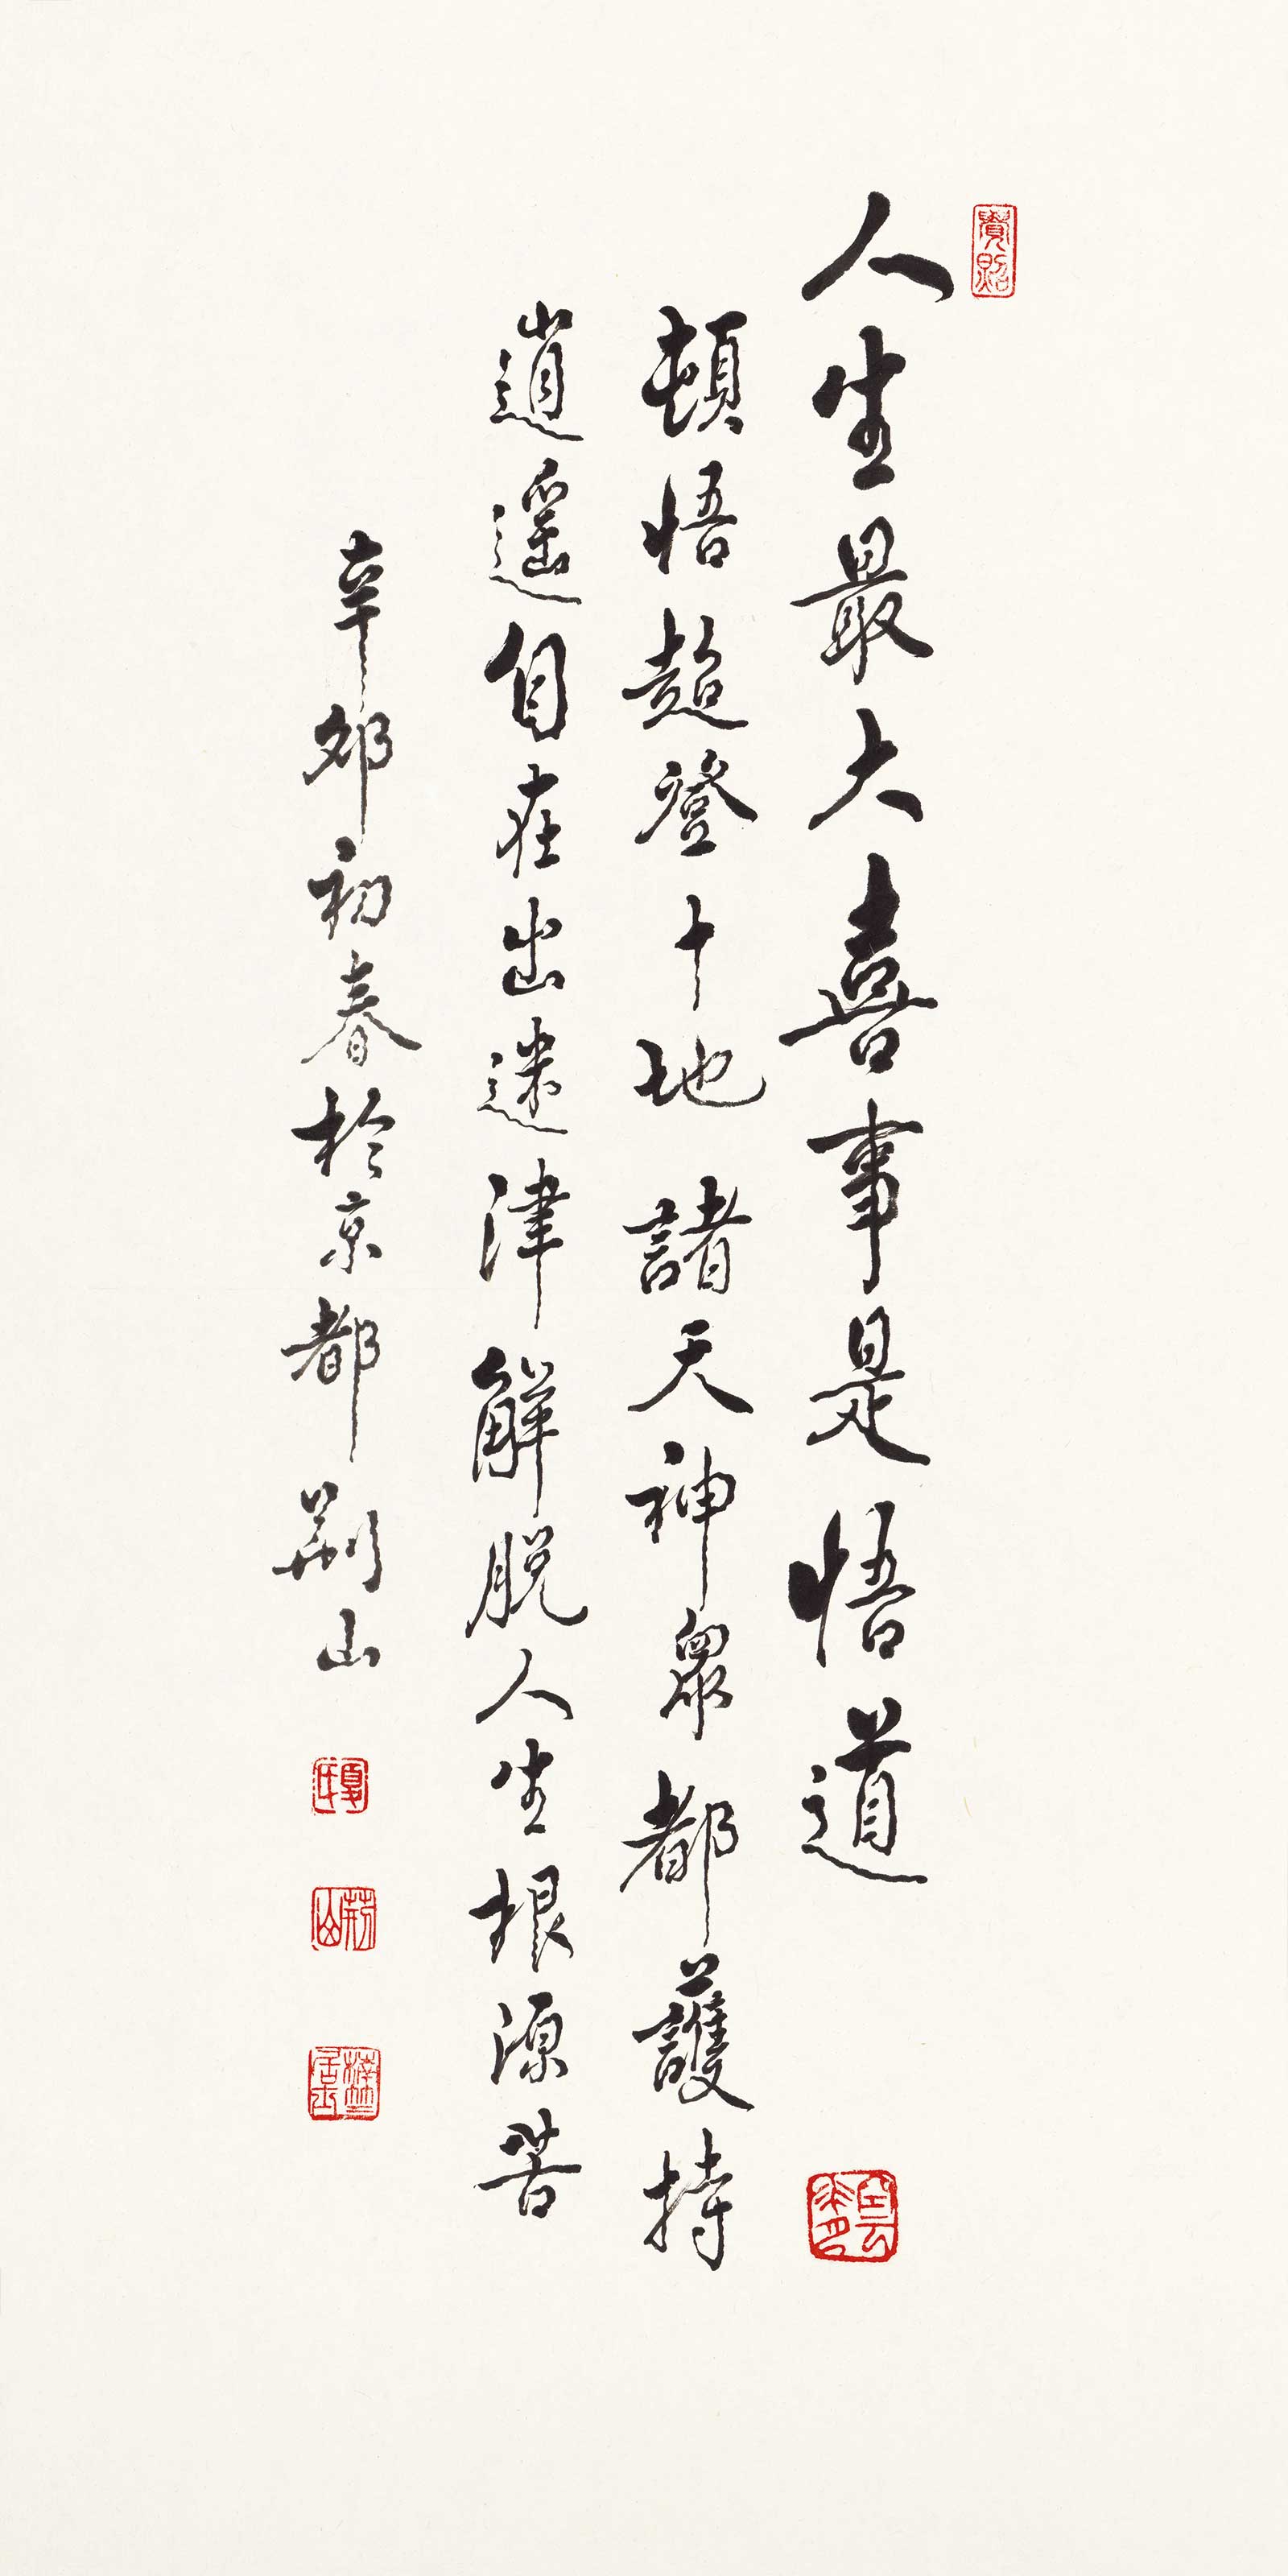 人生最大喜事是悟道
頓悟超登十地諸天神眾都護持
逍遥自在出迷津解脫人生根源苦
辛卯初春於京都荆山
夏氏
荆山